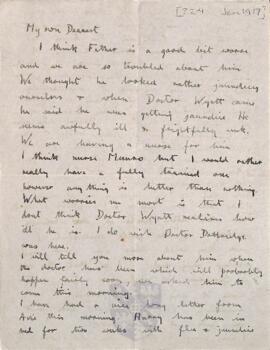 [224 Jan 1917]
My own Dearest
I think Father is a good bit worse
and we are so troubled about him
We thought he looked rather jaundiced
ourselves & when Doctor Wyatt came
he said he was getting jaundice He
seems awfully ill & frightfully weak.
We are having a nurse for him
I think nurse Munro but I would rather
really have a fully trained one
however anything is better than nothing.
What worries me most is that I
dont think Doctor Wyatt realises how
ill he is. I do wish Doctor
was here.
I will tell you more about him when
the doctor has been which will probably
happen fairly soon, we asked him to
come this morning.
I have had a nice long letter from
this morning has been in
bed for two weeks with flu & jaundice